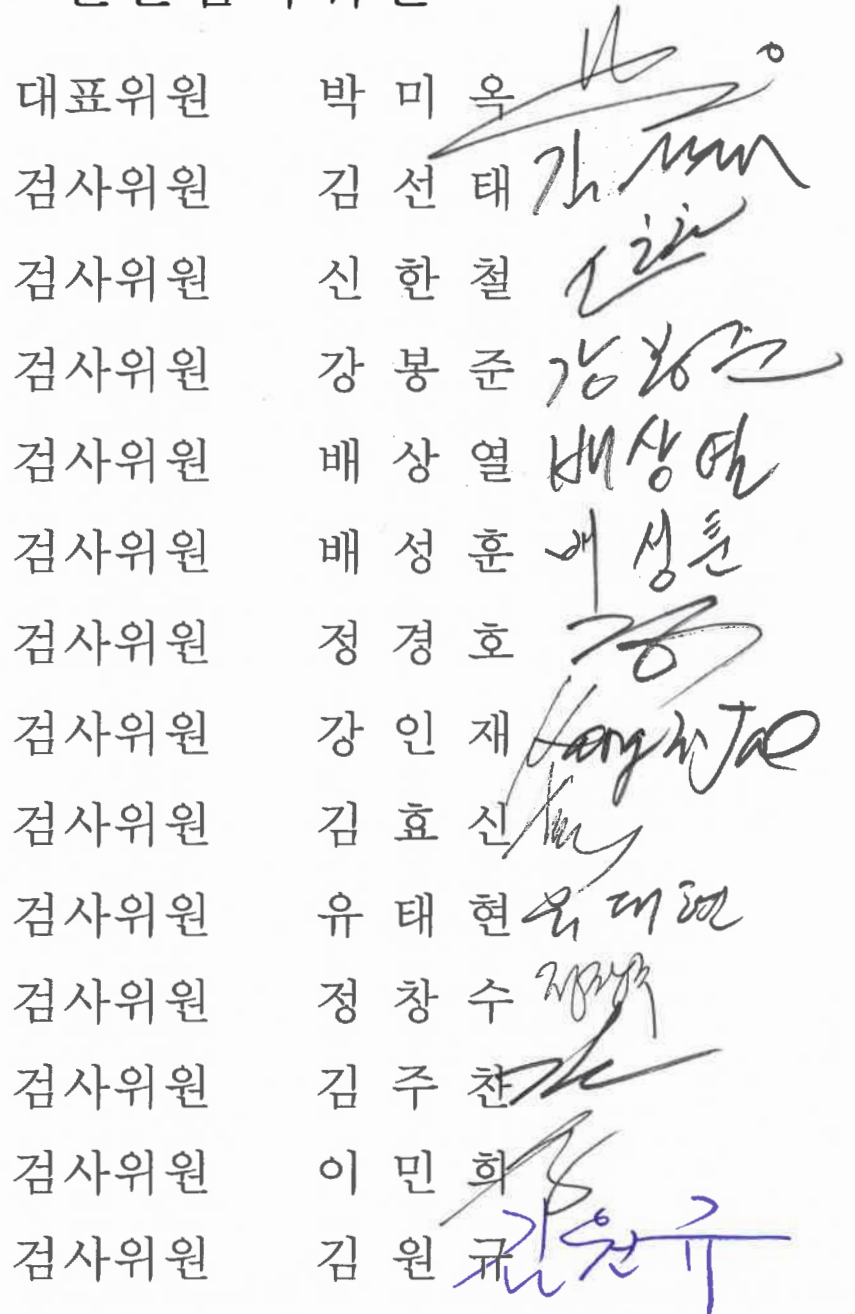 대표위원 박 미 옥
검사위원 김 선 태
검사위원 신 한 철
검사위원 강 봉 준 강봉준
검사위원 배 상 열 배상열
검사위원 배 성 훈 배성훈
검사위원 정 경 호
검사위원 강 인 재 Kang In Jae
검사위원 김 효 신
검사위원 유 태 현 유태현
검사위원 정 창 수 정창수
검사위원 김 주 찬
검사위원 이 민 희
검사위원 김 원 규 김원규